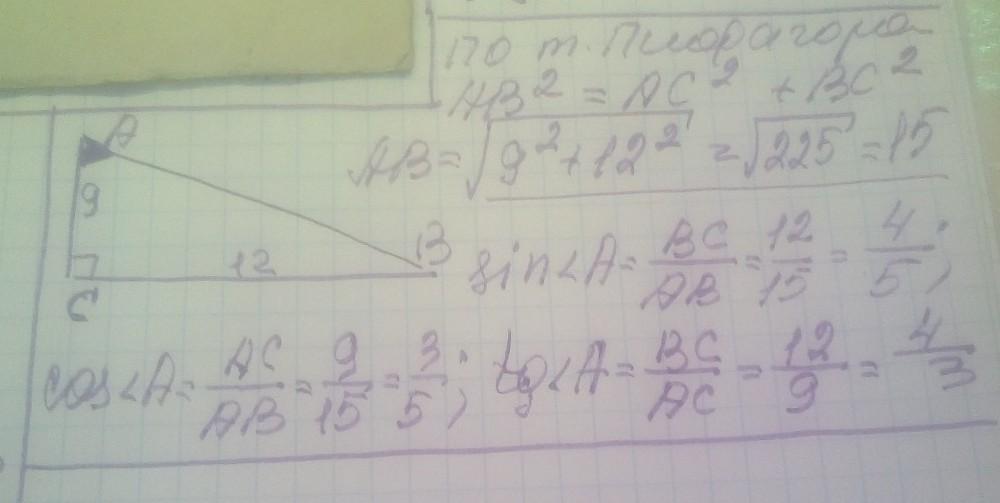 по т. Пифагора
AB² = AC² + BC²
AB = √9² + 12² = √225 = 15
A
9
12
B
C
sin<A = BC/AB = 12/15 = 4/5;
cos<A = AC/AB = 9/15 = 3/5; tg<A = BC/AC = 12/9 = 4/3